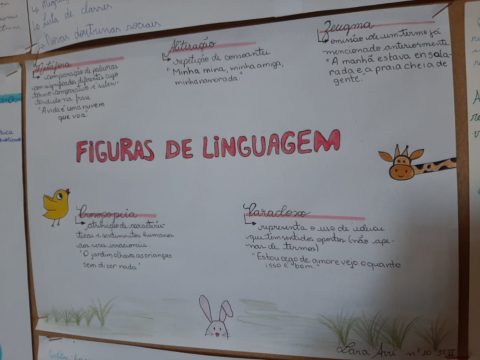 falta de clareza
Metáfora
comparação de palavras
com significados diferentes cujo
termo comparativo é suben-
tendido na frase
"A vida é uma nuvem
que voa"
Aliteração
repetição de consoantes
"Minha mina, minha amiga,
minha namorada"
Zeugma
omissão de um termo já
mencionado anteriormente
"A manhã estava ensola-
rada e a praia cheia de
gente.
FIGURAS DE LINGUAGEM
Prosopopeia
atribuição de caracterís-
ticas e sentimentos humanos
aos seres irracionais
"O jardim olhava as crianças
sem dizer nada"
Paradoxo
representa o uso de ideias
que tem sentidos opostos (não ape-
nas de termos)
"Estou cego de amor e vejo o quanto
isso é bom."
nº 20